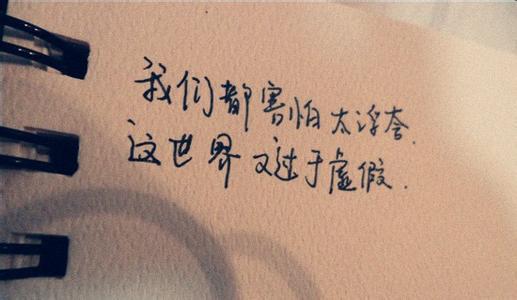 我们都害怕太浮夸.
这世界又过于虚假.